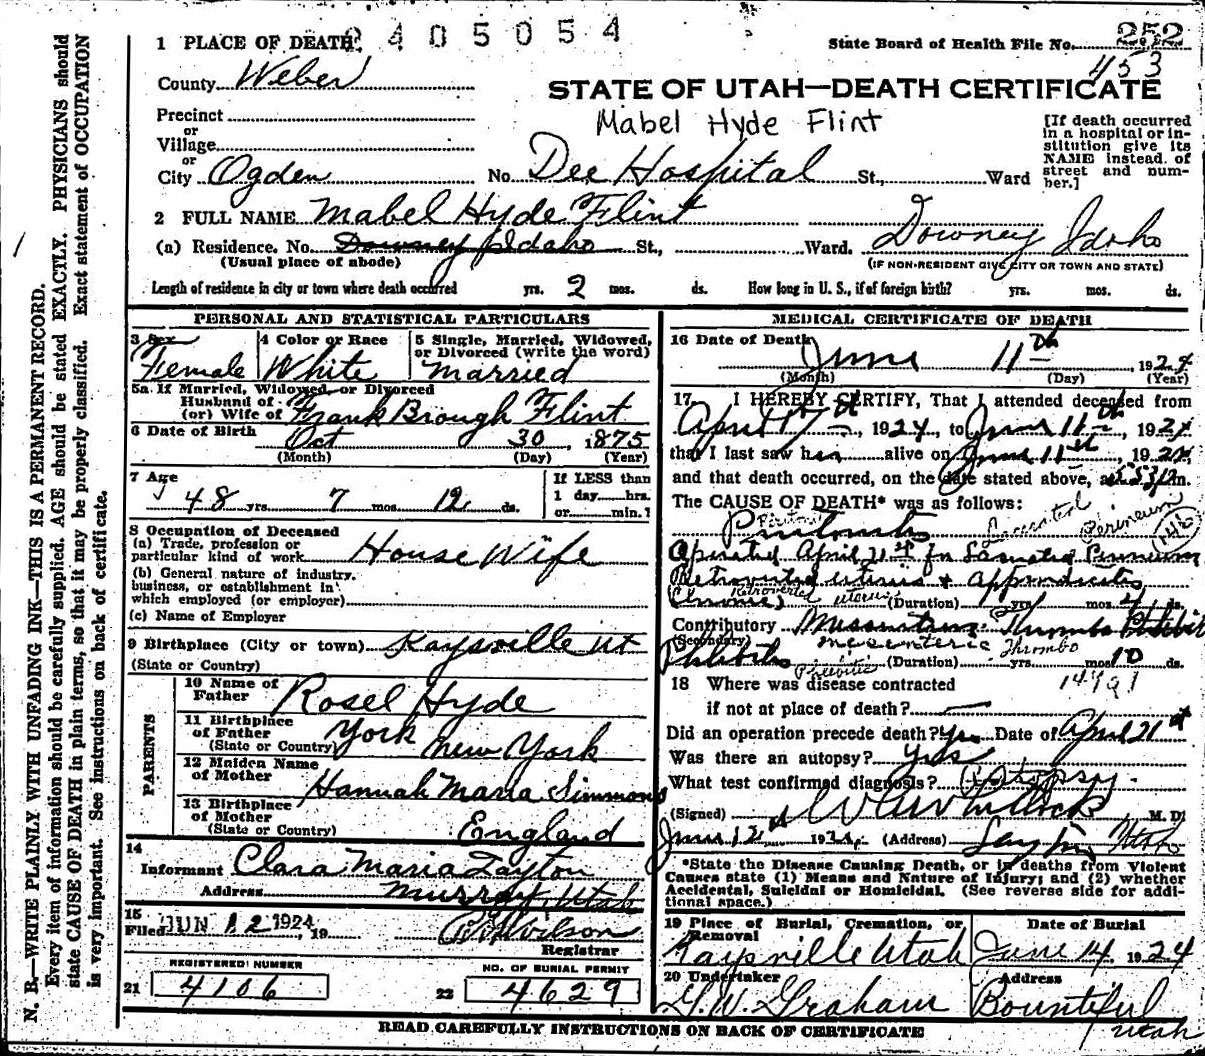 2405054
1 PLACE OF DEATH
State Board of Health File No. 252
453
County Weber
STATE OF UTAH—DEATH CERTIFICATE
Precinct
Mabel Hyde Flint
or
Village
or
City Ogden No. Dee Hospital St., Ward
[If death occurred
in a hospital or in-
stitution give its
NAME instead of
street and num-
ber.]
2 FULL NAME Mabel Hyde Flint
(a) Residence. No. Downey Idaho St., Ward. Downey Idaho
(Usual place of abode) (IF NON-RESIDENT GIVE CITY OR TOWN AND STATE)
Length of residence in city or town where death occurred yrs. 2 mos. ds. How long in U. S., if of foreign birth? yrs. mos. ds.
PERSONAL AND STATISTICAL PARTICULARS
3 Sex 4 Color or Race 5 Single, Married, Widowed,
or Divorced (write the word)
Female White Married
5a If Married, Widowed or Divorced
Husband of
(or) Wife of Frank Brough Flint
6 Date of Birth Oct 30, 1875
(Month) (Day) (Year)
7 Age 48 yrs. 7 mos. 12 ds.
If LESS than
1 day hrs.
or min.?
8 Occupation of Deceased
(a) Trade, profession or
particular kind of work House Wife
(b) General nature of industry,
business, or establishment in
which employed (or employer)
(c) Name of Employer
9 Birthplace (City or town) Kaysville Ut
(State or Country)
PARENTS
10 Name of
Father Rosel Hyde
11 Birthplace
of Father
(State or Country) York New York
12 Maiden Name
of Mother Hannah Maria Simmons
13 Birthplace
of Mother
(State or Country) England
14
Informant Clara Maria Layton
Address Murray, Utah
15
Filed JUN 12 1924, 19 Wilson
Registrar
REGISTERED NUMBER NO. OF BURIAL PERMIT
21 4106 22 4629
MEDICAL CERTIFICATE OF DEATH
16 Date of Death June 11th 1924
(Month) (Day) (Year)
17 I HEREBY CERTIFY, That I attended deceased from
April 1924, to June 11th, 1924
that I last saw her alive on June 11st, 1924,
and that death occurred, on the date stated above, at m.
The CAUSE OF DEATH* was as follows:
Lacerated Perineum
146
Operated April 21st for Lacerated Perineum
Retroverted uterus + Appendicitis
(Chronic) Retroverted uterus (Duration) yrs. mos. ds.
Contributory Thrombo Phlebitis
(Secondary) Mesenteric Thrombo
Phlebitis (Duration) yrs. mos. 10 ds.
Phlebitis
18 Where was disease contracted
if not at place of death?
Did an operation precede death? Yes Date of April 21st
Was there an autopsy? Yes
What test confirmed diagnosis? Autopsy.
(Signed) Whitlock M. D.
June 12 192 (Address) Layton Utah
*State the Disease Causing Death, or in deaths from Violent
Causes state (1) Means and Nature of Injury; and (2) whether
Accidental, Suicidal or Homicidal. (See reverse side for addi-
tional space.)
19 Place of Burial, Cremation, or
Removal
Date of Burial
Kaysville Utah June 14, 1924
20 Undertaker Address
G. W. Graham Bountiful
Utah
READ CAREFULLY INSTRUCTIONS ON BACK OF CERTIFICATE
N. B.—WRITE PLAINLY WITH UNFADING INK—THIS IS A PERMANENT RECORD.
Every item of information should be carefully supplied. AGE should be stated EXACTLY. PHYSICIANS should
state CAUSE OF DEATH in plain terms, so that it may be properly classified. Exact statement of OCCUPATION
is very important. See instructions on back of certificate.